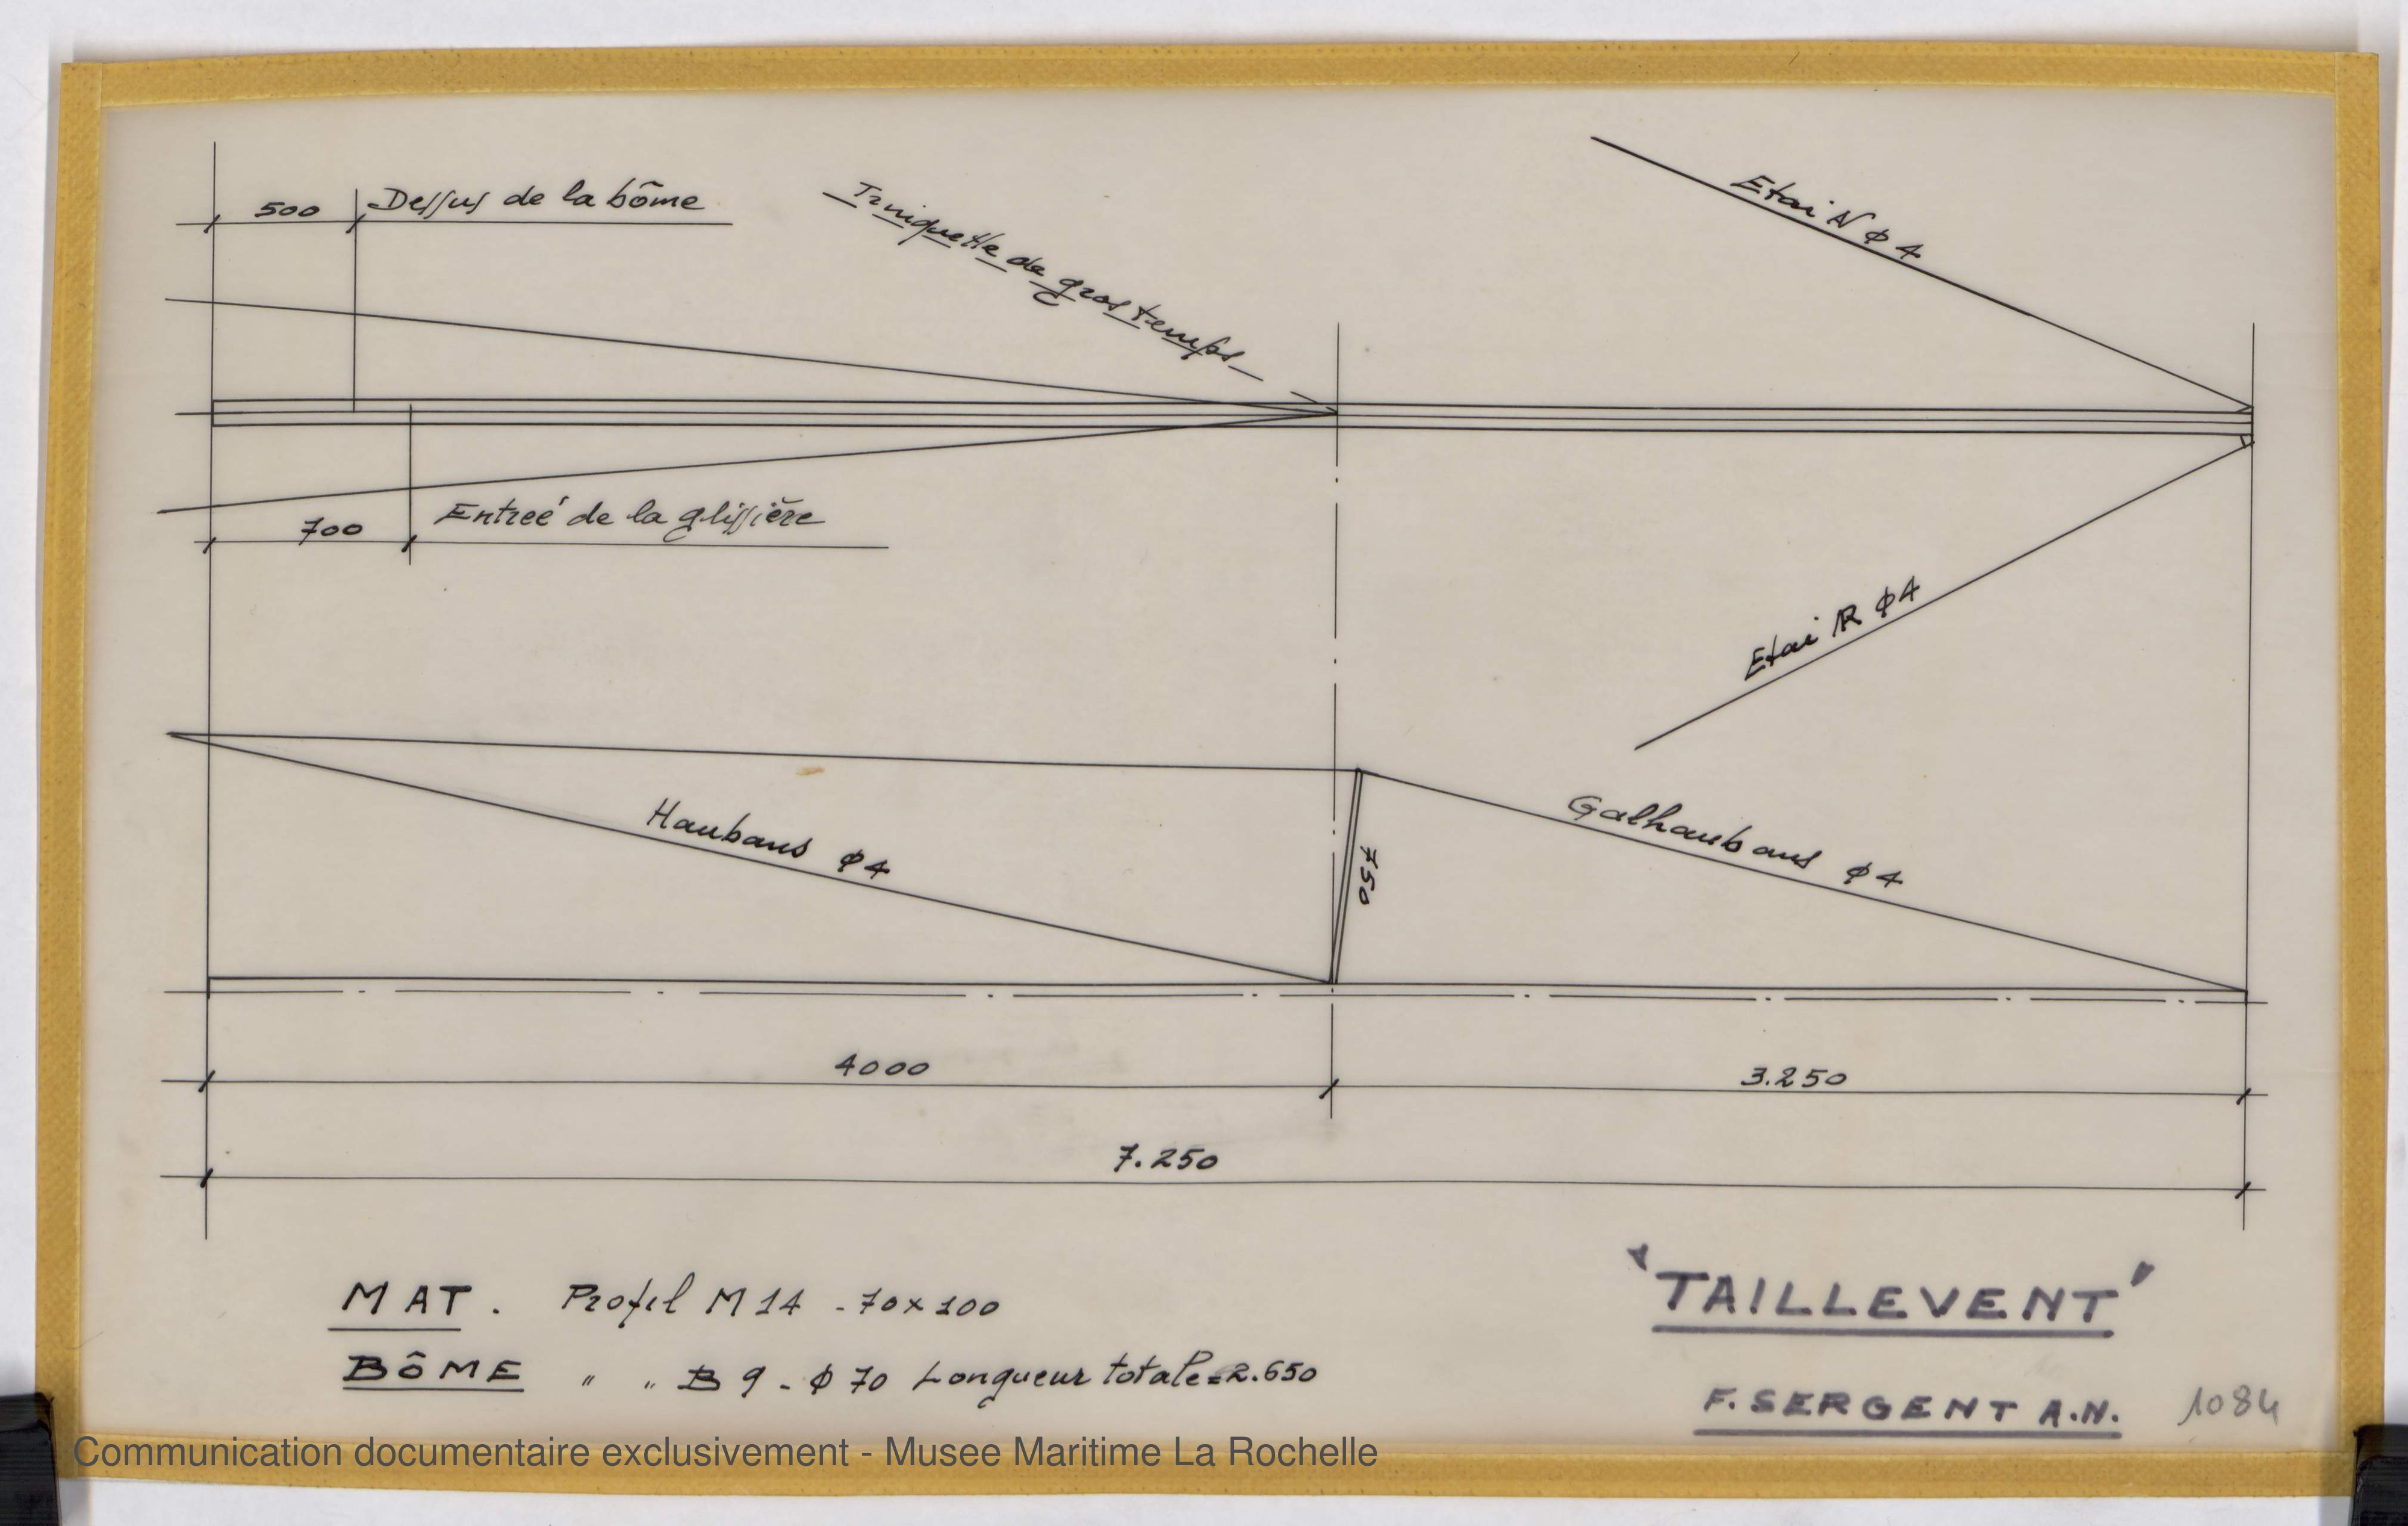 500 Dessus de la bôme
Trinquette de gros temps
Etai AV ϕ 4
700 Entreé de la glissière
Etai AR ϕ 4
Haubans ϕ 4
750
Galhaubans ϕ 4
4000
3.250
7.250
MAT. Profil M 14 - 70 x 100
BÔME " " B 9 - ϕ 70 Longueur totale = 2.650
"TAILLEVENT"
F. SERGENT A.N. 1084
Communication documentaire exclusivement - Musee Maritime La Rochelle